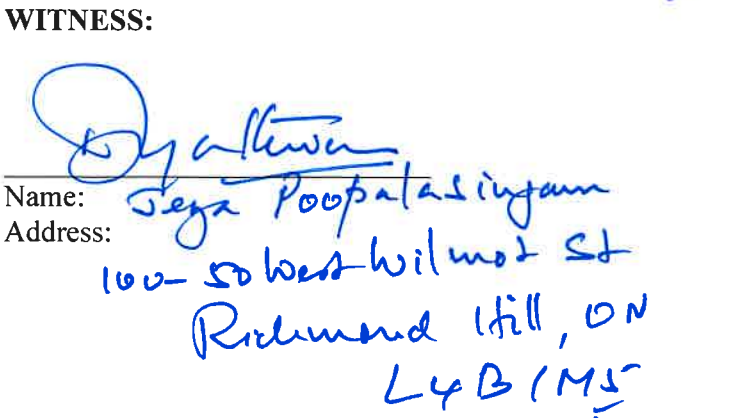 WITNESS:
Name: Jega Poopalasingam
Address:
100-50 West Wilmot St
Richmond Hill, ON
L4B 1M5